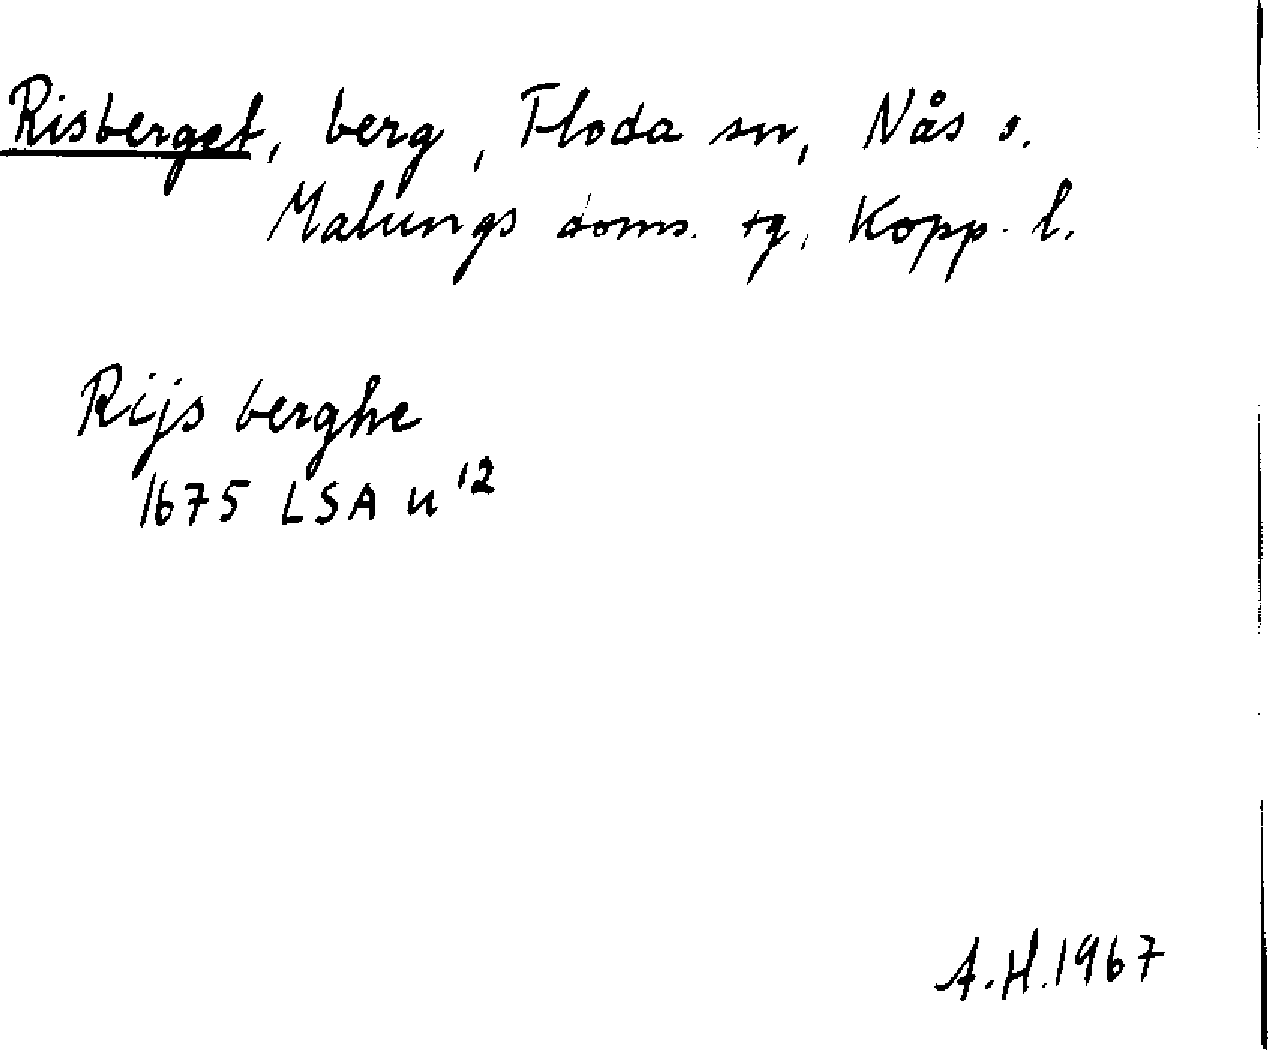 Risberget, berg, Floda sn, Nås o.
Malungs doms. tg, Kopp. l.
Rijs berghe
1675 LSA u 12
A.H. 1967